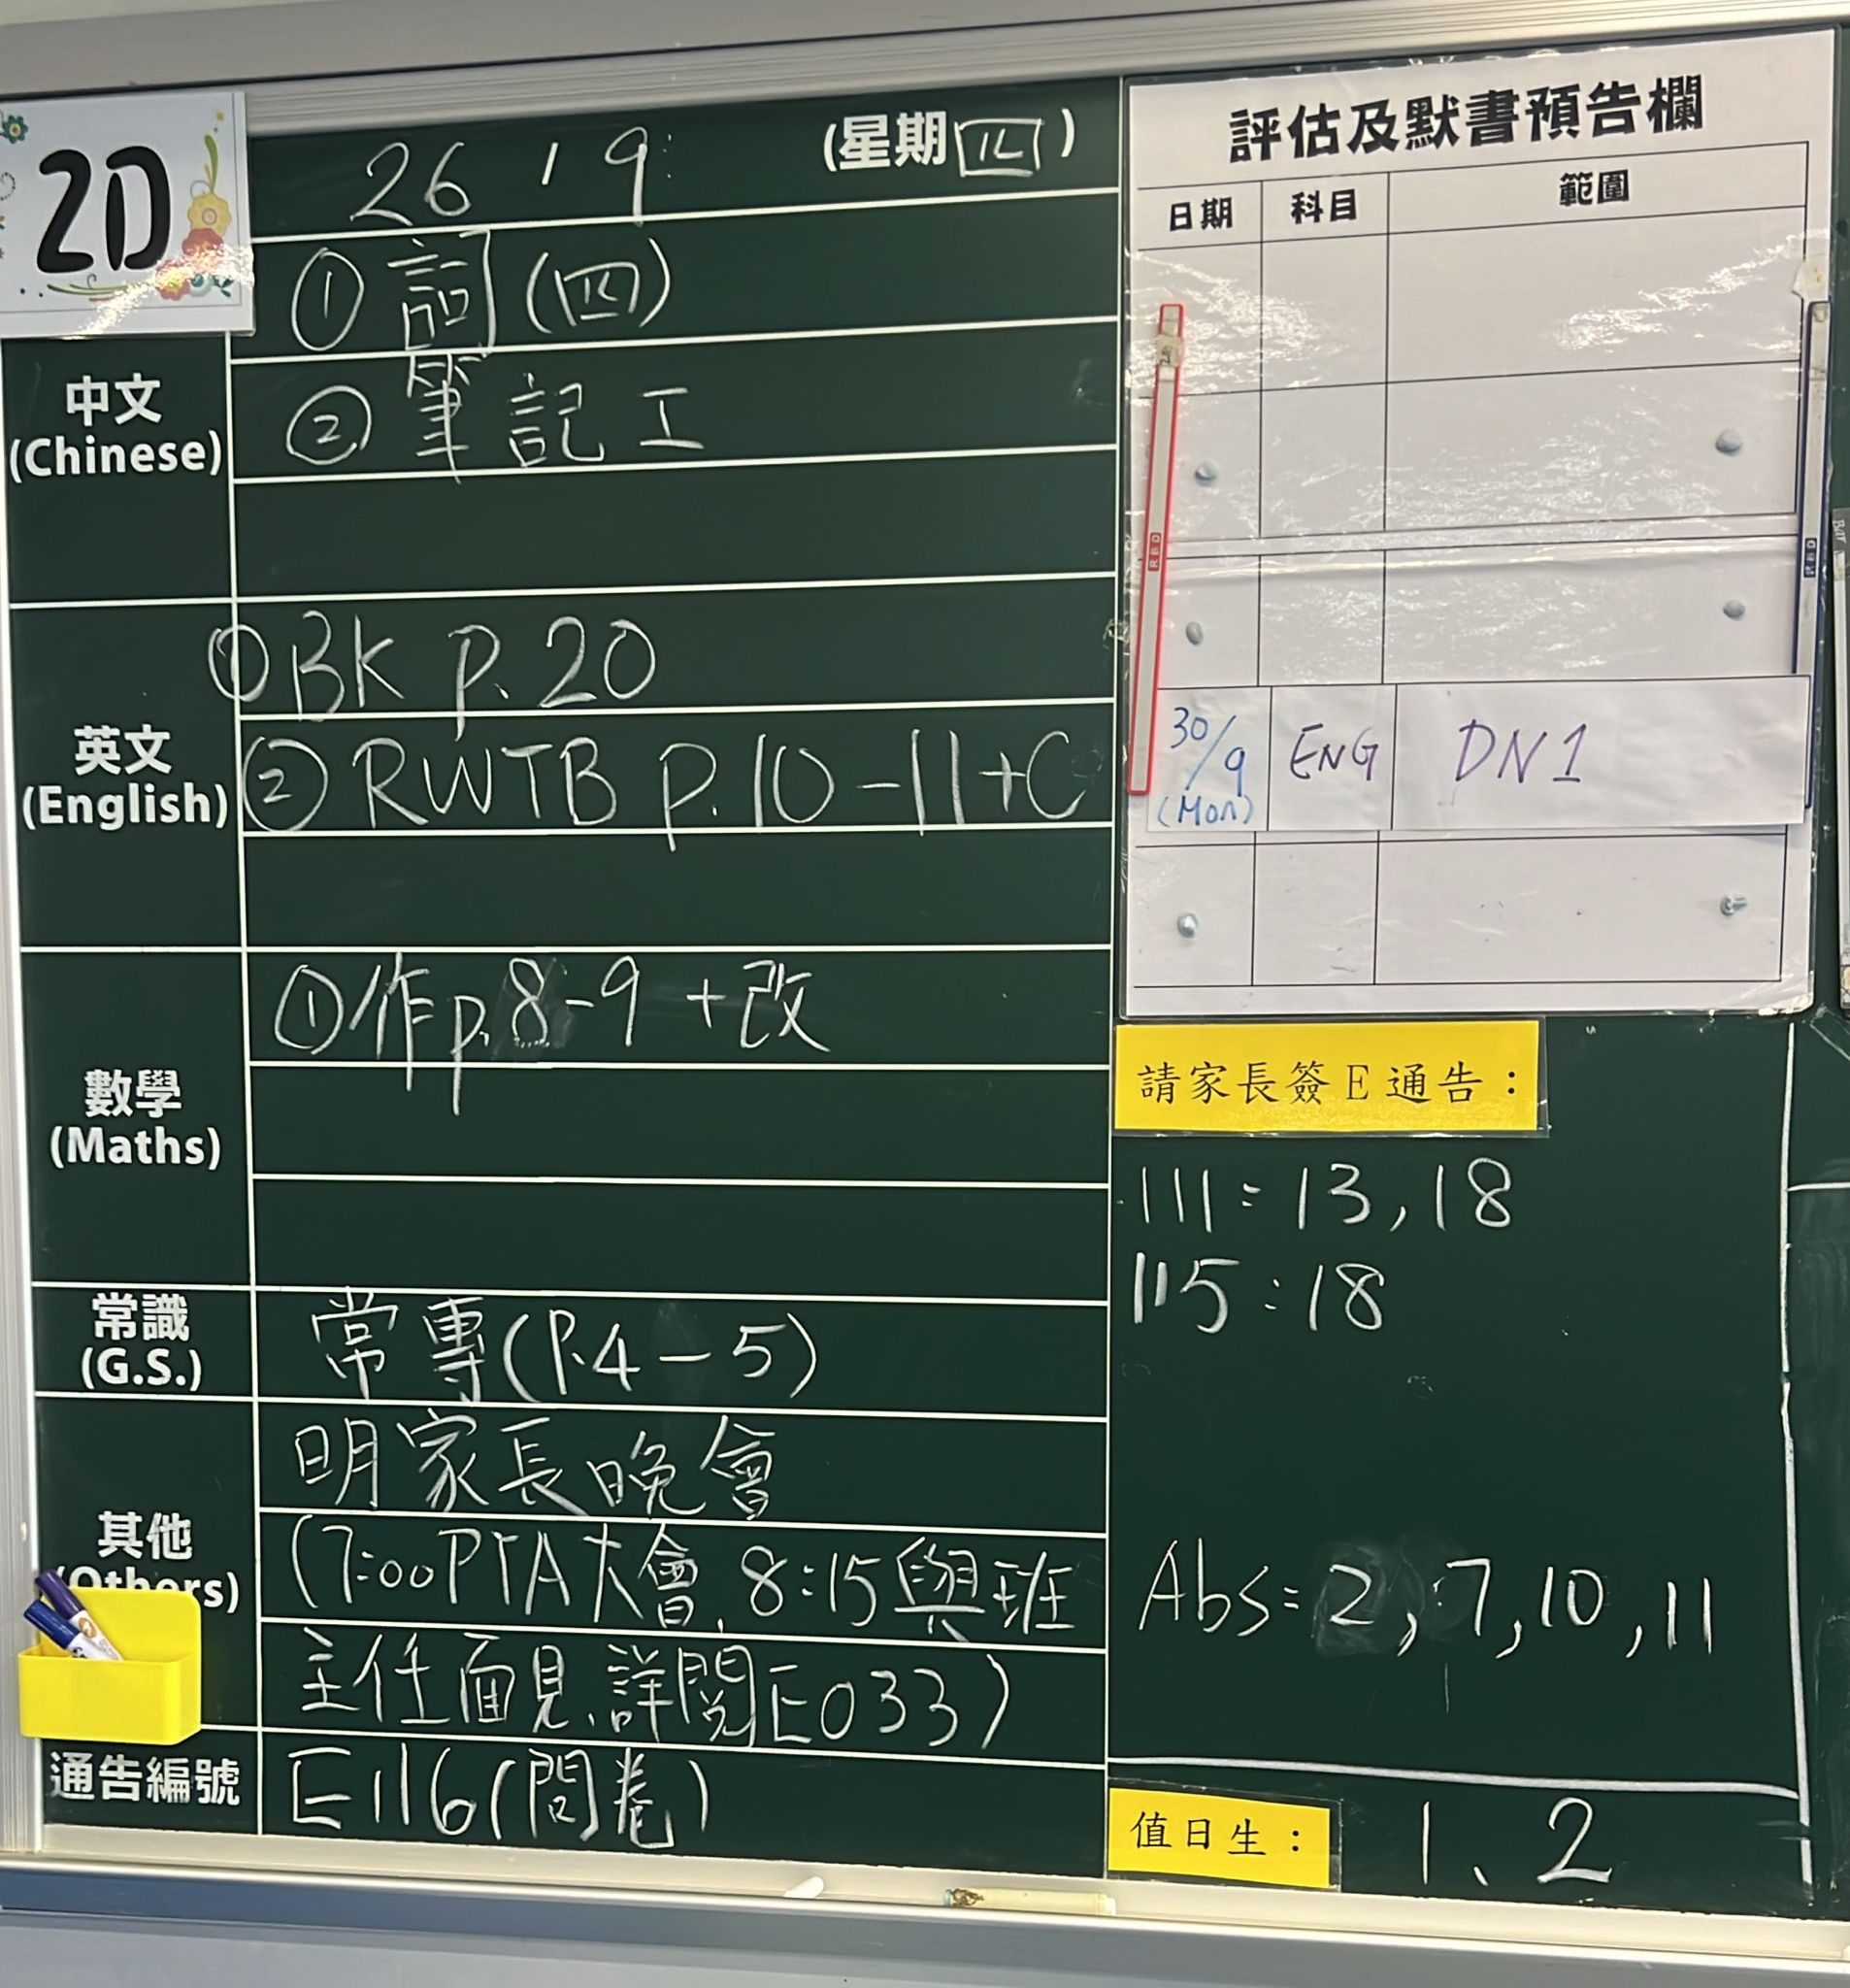 2D
26 / 9
(星期四)
中文
(Chinese)
① 詞(四)
② 筆記工
英文
(English)
① BK p.20
② RWTB p.10-11+C
數學
(Maths)
① 作p.8-9 +改
常識
(G.S.)
常專(P.4-5)
其他
(Others)
明家長晚會
(7:00PTA大會, 8:15與班
主任面見、詳閱E033)
通告編號
E116(問卷)
評估及默書預告欄
日期 科目 範圍
30/9 ENG DN1
(Mon)
請家長簽E通告：
111:13,18
115:18
Abs=2,7,10,11
值日生： 1、2